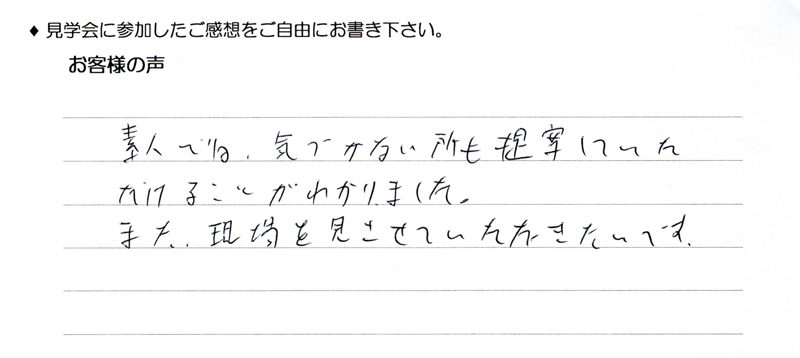 ♦ 見学会に参加したご感想をご自由にお書き下さい。
お客様の声
素人では、気づかない所も提案していた
だけることがわかりました。
また、現場を見させていただきたいです。